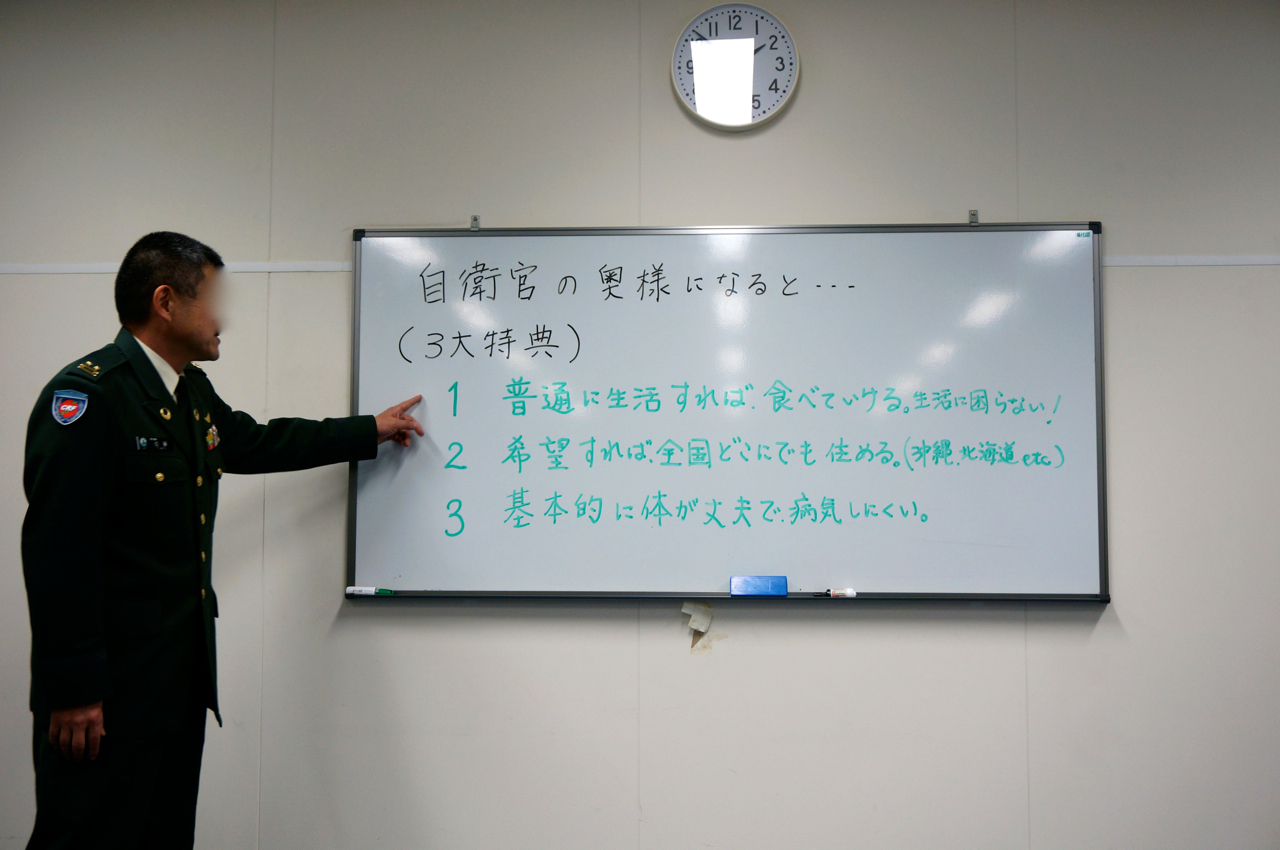 12
11 1
2
9 3
4
5
自衛官の奥様になると…
(3大特典)
1 普通に生活すれば、食べていける。生活に困らない!
2 希望すれば、全国どこにでも住める。(沖縄、北海道etc)
3 基本的に体が丈夫で、病気しにくい。
CRF